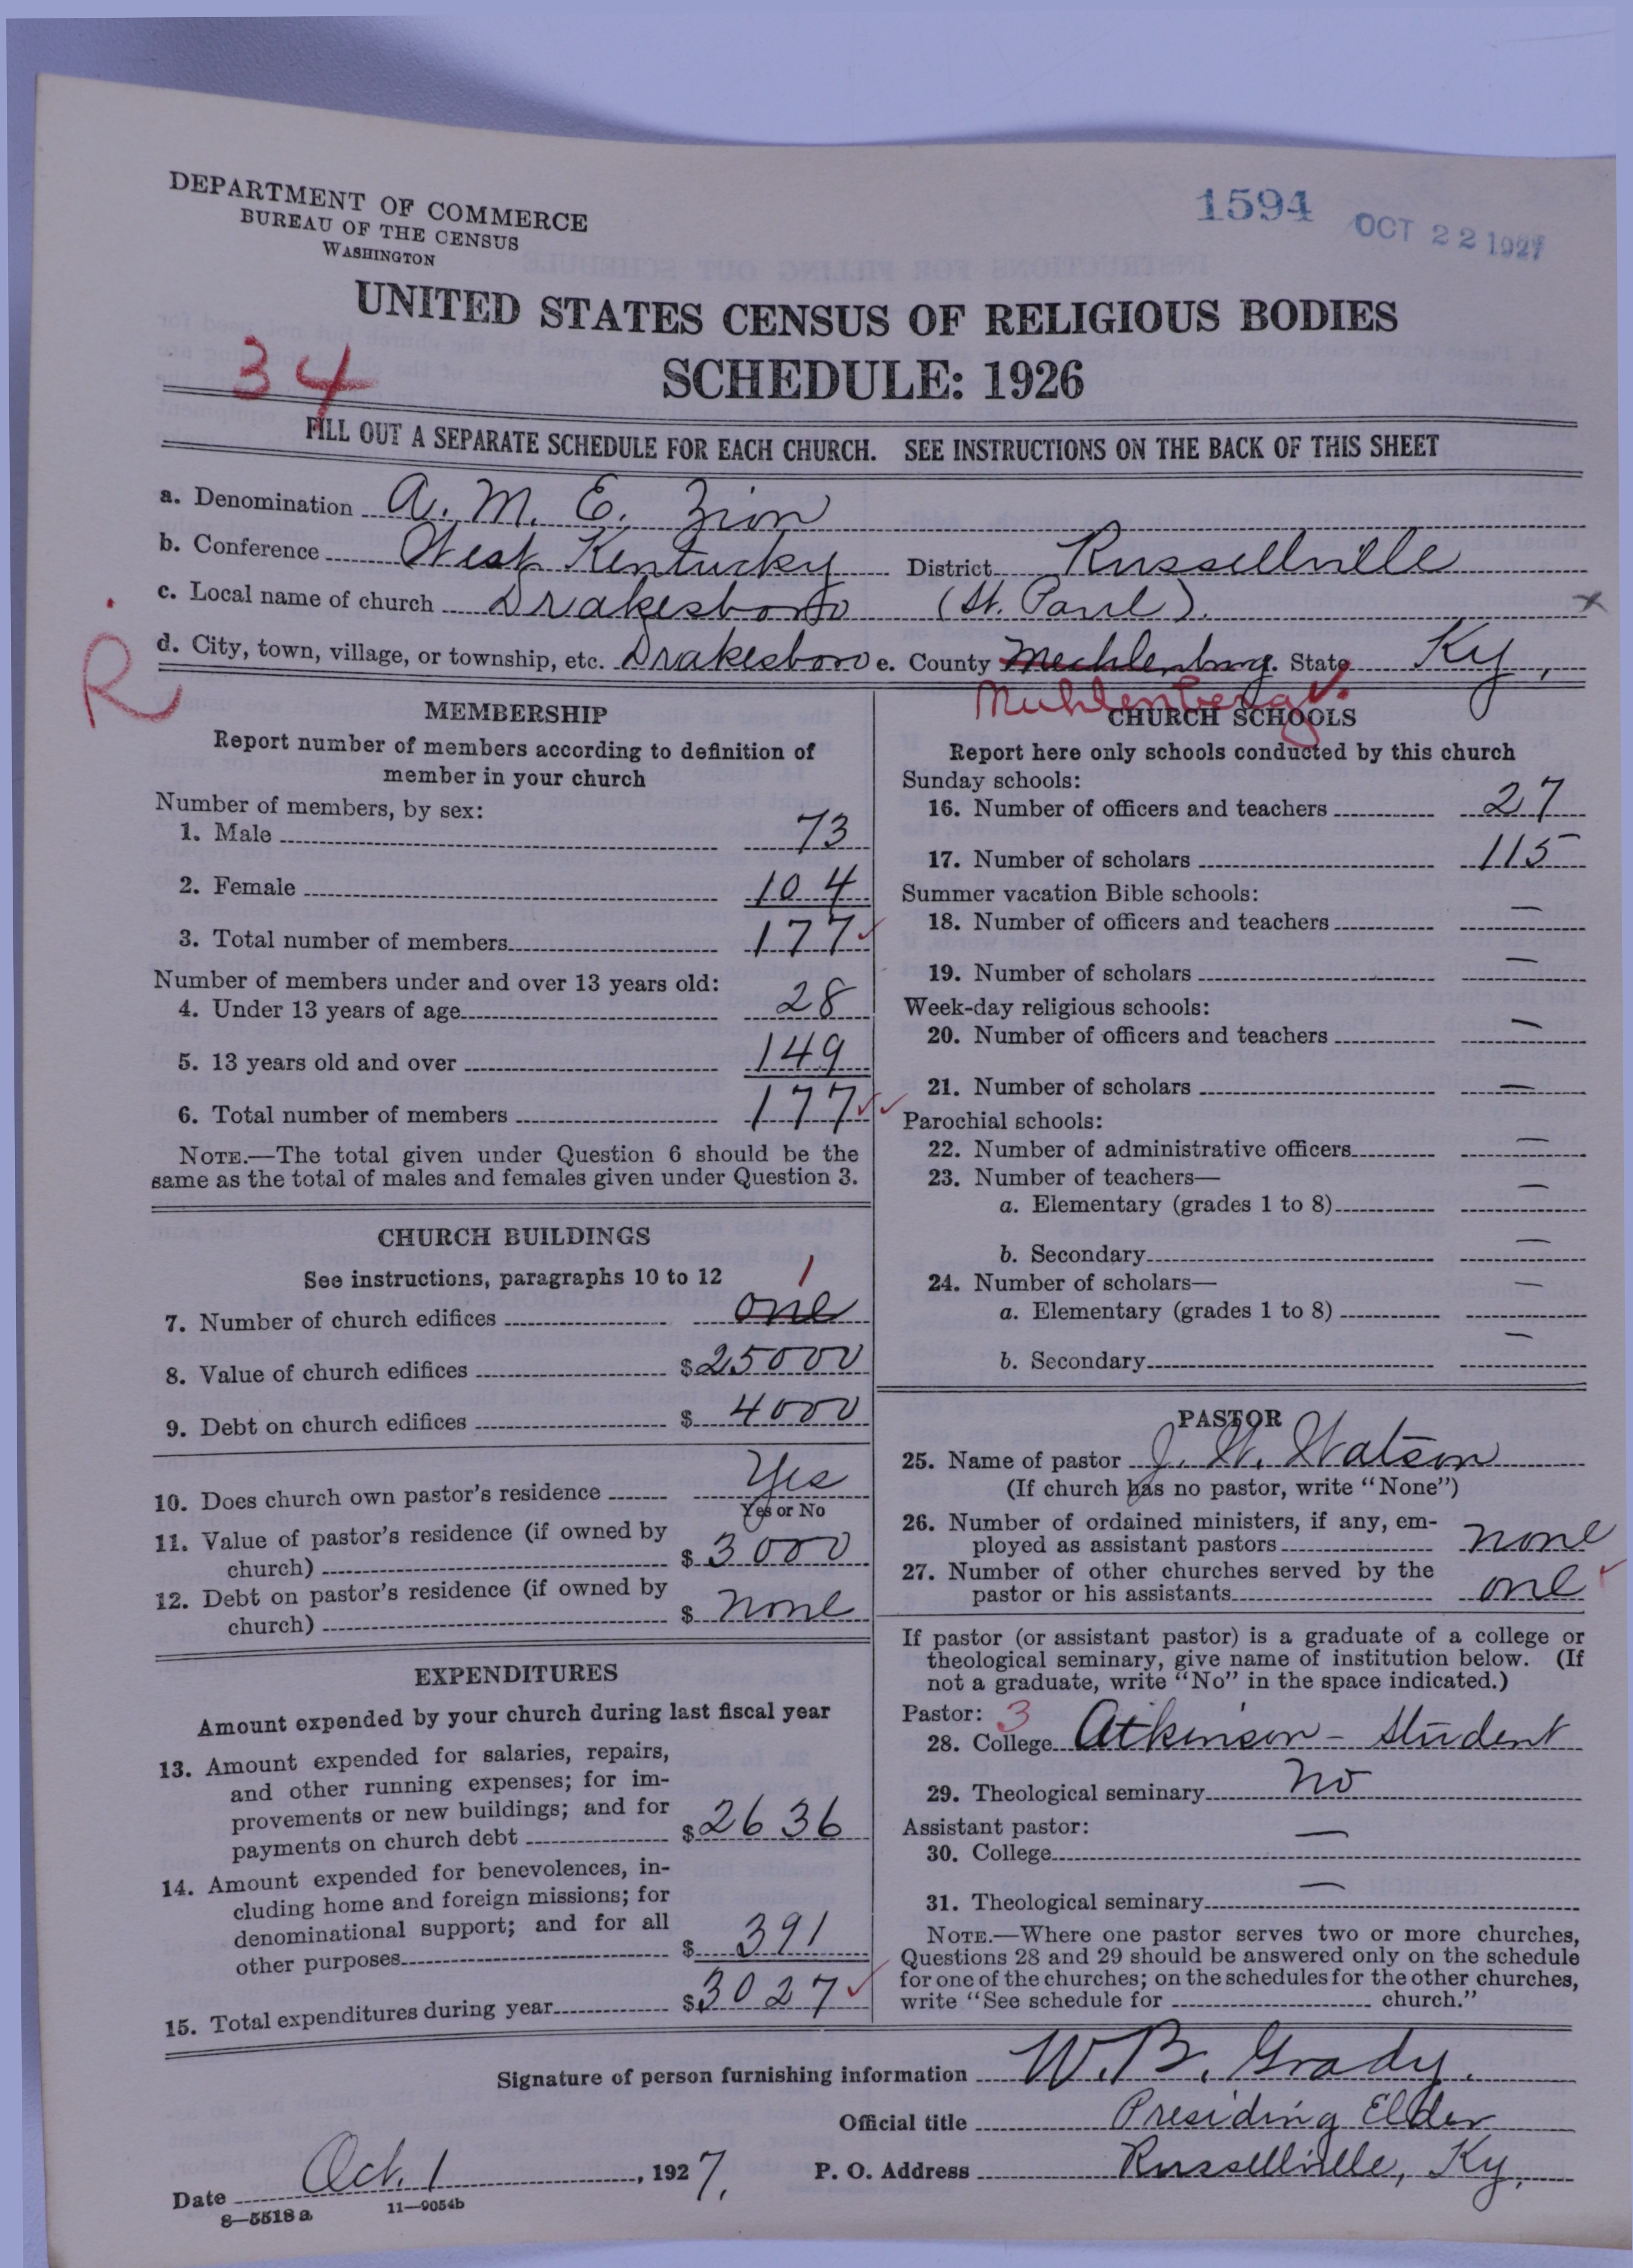 DEPARTMENT OF COMMERCE
BUREAU OF THE CENSUS
WASHINGTON
1594
OCT 22 1927
UNITED STATES CENSUS OF RELIGIOUS BODIES
34
SCHEDULE: 1926
FILL OUT A SEPARATE SCHEDULE FOR EACH CHURCH. SEE INSTRUCTIONS ON THE BACK OF THIS SHEET
a. Denomination A. M. E. Zion
b. Conference West Kentucky District Russellville
c. Local name of church Drakesboro (St. Paul). x
d. City, town, village, or township, etc. Drakesboro e. County Mechlenburg. State Ky.
R
Muhlenberg
MEMBERSHIP
Report number of members according to definition of
member in your church
Number of members, by sex:
1. Male 73
2. Female 104
3. Total number of members 177
Number of members under and over 13 years old:
4. Under 13 years of age 28
5. 13 years old and over 149
6. Total number of members 177
NOTE.—The total given under Question 6 should be the
same as the total of males and females given under Question 3.
CHURCH BUILDINGS
See instructions, paragraphs 10 to 12
1
7. Number of church edifices one
8. Value of church edifices $25000
9. Debt on church edifices $4000
10. Does church own pastor's residence Yes
Yes or No
11. Value of pastor's residence (if owned by
church) $3000
12. Debt on pastor's residence (if owned by
church) $ none
EXPENDITURES
Amount expended by your church during last fiscal year
13. Amount expended for salaries, repairs,
and other running expenses; for im-
provements or new buildings; and for
payments on church debt $2636
14. Amount expended for benevolences, in-
cluding home and foreign missions; for
denominational support; and for all
other purposes $391
15. Total expenditures during year $3027
CHURCH SCHOOLS
Report here only schools conducted by this church
Sunday schools:
16. Number of officers and teachers 27
17. Number of scholars 115
Summer vacation Bible schools:
18. Number of officers and teachers —
19. Number of scholars —
Week-day religious schools:
20. Number of officers and teachers —
21. Number of scholars —
Parochial schools:
22. Number of administrative officers —
23. Number of teachers—
a. Elementary (grades 1 to 8) —
b. Secondary —
24. Number of scholars—
a. Elementary (grades 1 to 8) —
b. Secondary —
PASTOR
25. Name of pastor J. W. Watson
(If church has no pastor, write "None")
26. Number of ordained ministers, if any, em-
ployed as assistant pastors none
27. Number of other churches served by the
pastor or his assistants one
If pastor (or assistant pastor) is a graduate of a college or
theological seminary, give name of institution below. (If
not a graduate, write "No" in the space indicated.)
Pastor: 3
28. College Atkinson - Student
29. Theological seminary No
Assistant pastor:
30. College —
31. Theological seminary —
NOTE.—Where one pastor serves two or more churches,
Questions 28 and 29 should be answered only on the schedule
for one of the churches; on the schedules for the other churches,
write "See schedule for church."
Signature of person furnishing information W. B. Grady.
Official title Presiding Elder
Date Oct. 1, 1927. P. O. Address Russellville, Ky.
8—5518 a 11—9054b